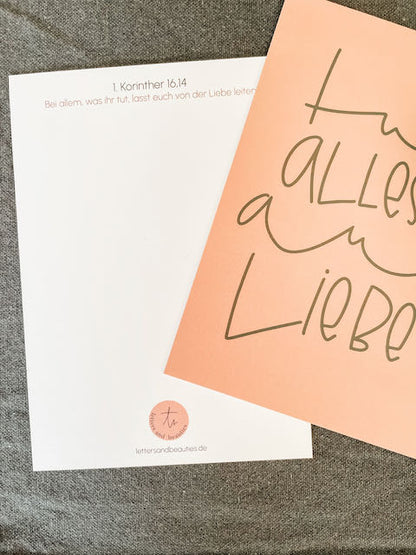 1. Korinther 16,14
Bei allem, was ihr tut, lasst euch von der Liebe leiten
tu
ALLES
au
LIEBE
ts
letters and beauties
lettersandbeauties.de